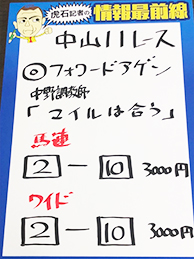 虎石記者の
情報最前線
中山11レース
◎フォワードアゲン
中野調教師
「マイルは合う」
馬連
2－10 3000円
ワイド
2－10 3000円